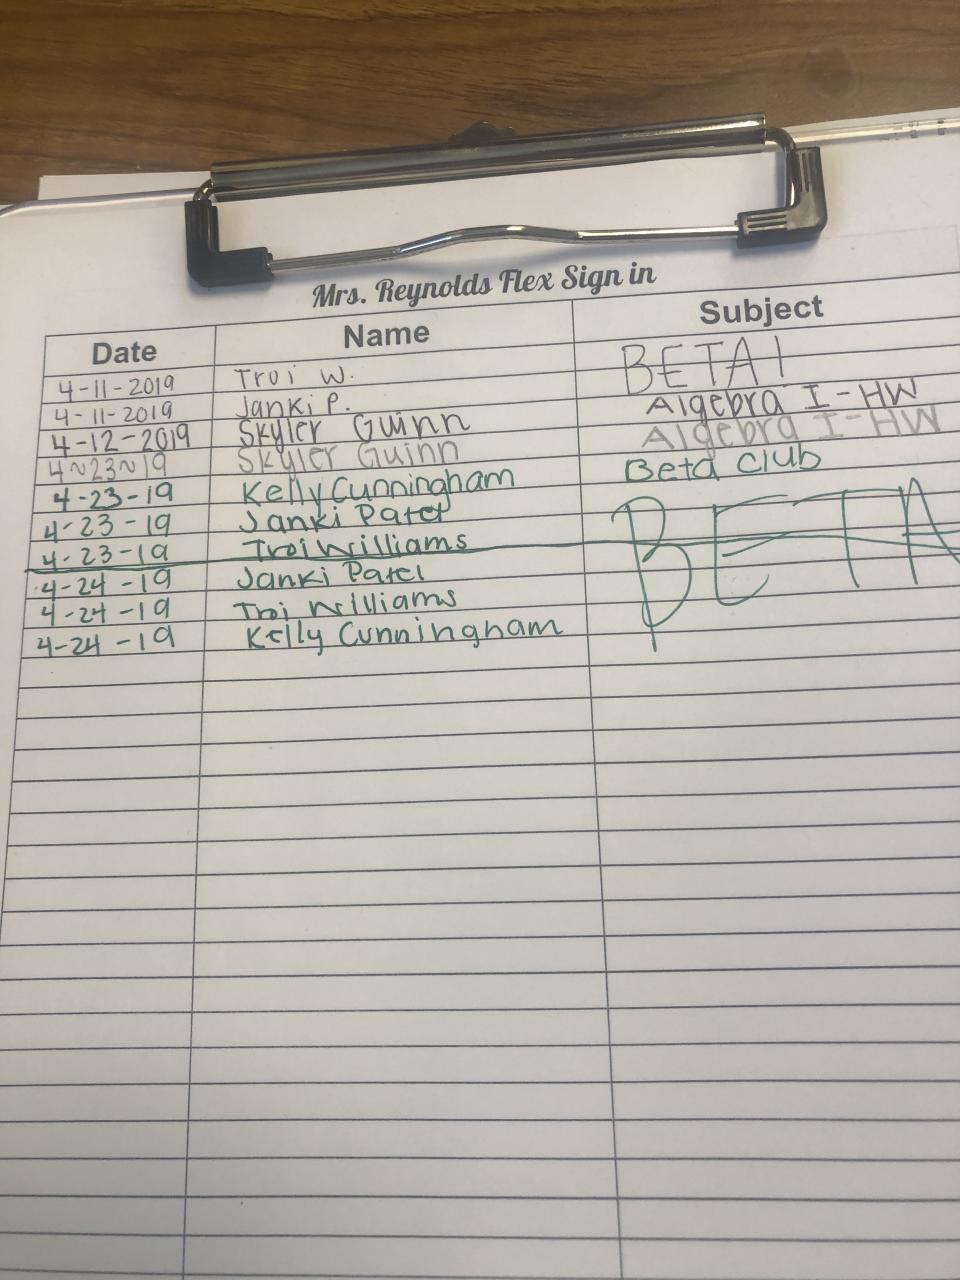 Mrs. Reynolds Flex Sign in
Date Name Subject
4-11-2019 Troi W. BETA!
4-11-2019 Janki P.
4-12-2019 Skyler Guinn Algebra I-HW
4~23~19 Skyler Guinn Algebra I-HW
4-23-19 Kelly Cunningham Beta Club
4-23-19 Janki Patel BETA
4-23-19 Troi Williams
4-24-19 Janki Patel
4-24-19 Troi Williams
4-24-19 Kelly Cunningham